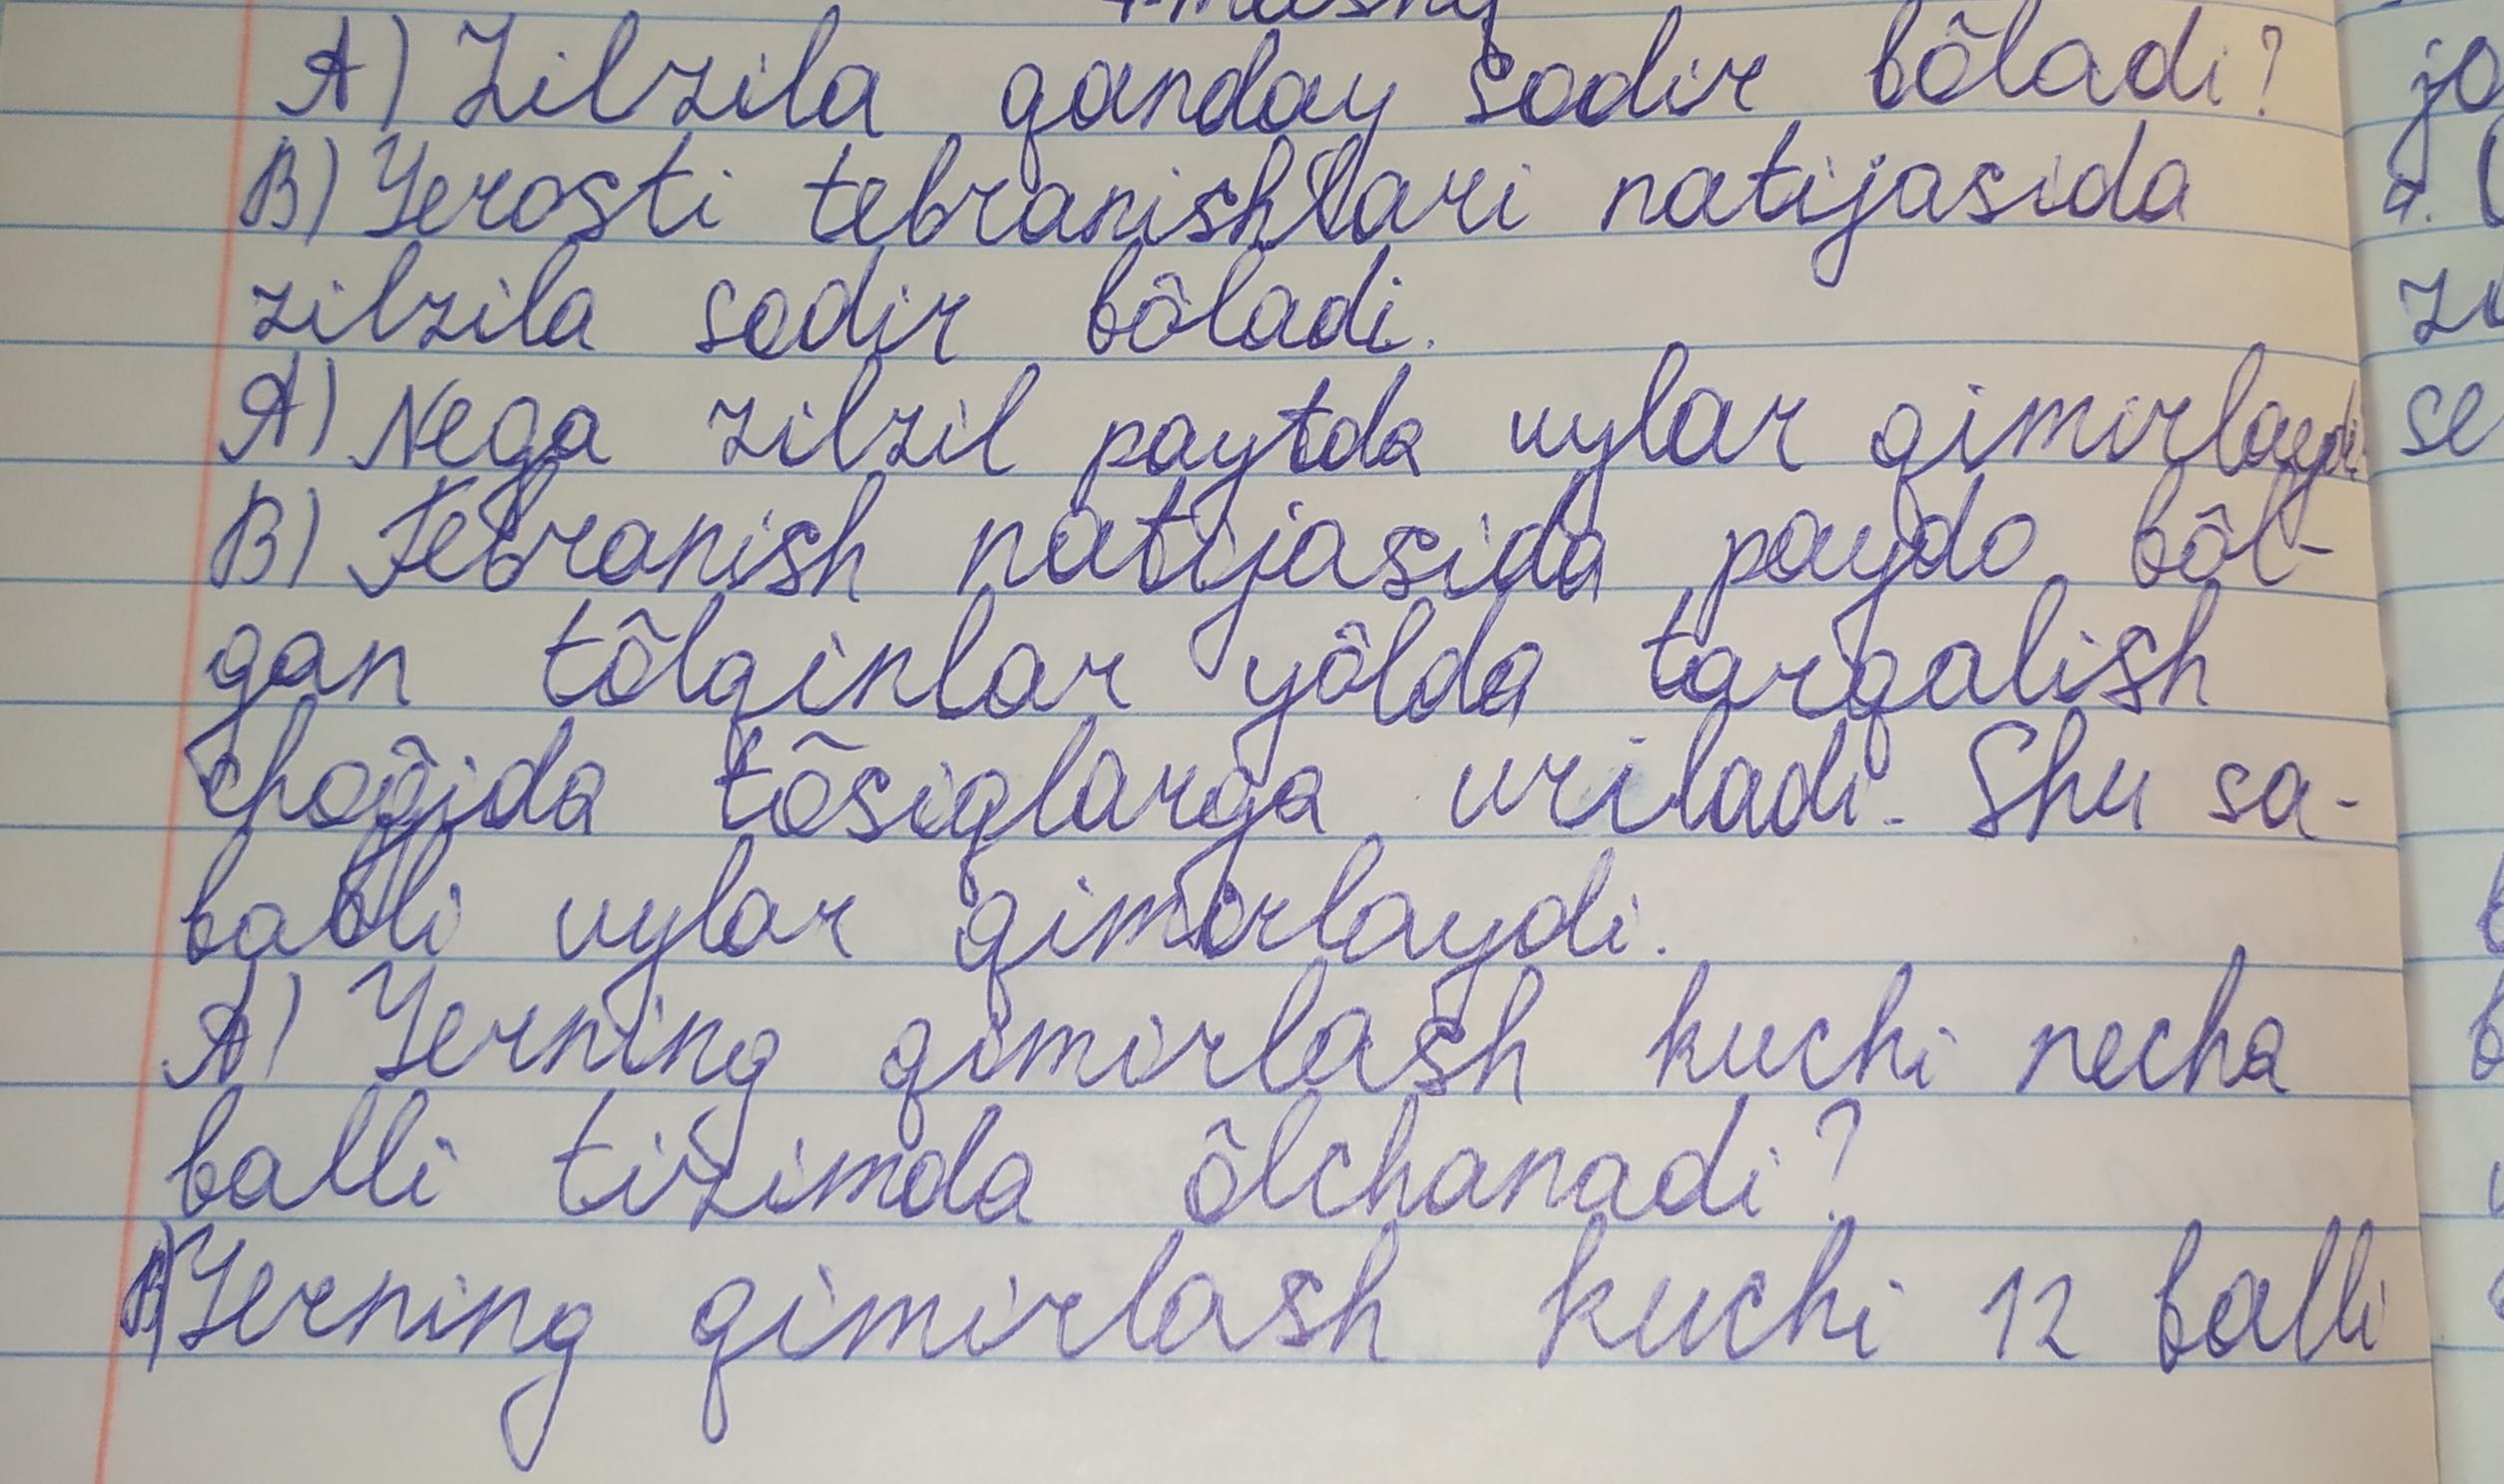 A) Zilzila qanday sodir bõladi?
B) Yerosti tebranishlari natijasida
zilzila sodir bõladi.
A) Nega zilzil paytda uylar qimirlaydi
B) Tebranish natijasida paydo bõl-
gan tõlqinlar yõlda tarqalish
chog̃ida tõsiqlarga uriladi. Shu sa-
babli uylar qimirlaydi.
A) Yerning qimirlash kuchi necha
balli tizimda õlchanadi?
B) Yerning qimirlash kuchi 12 balli